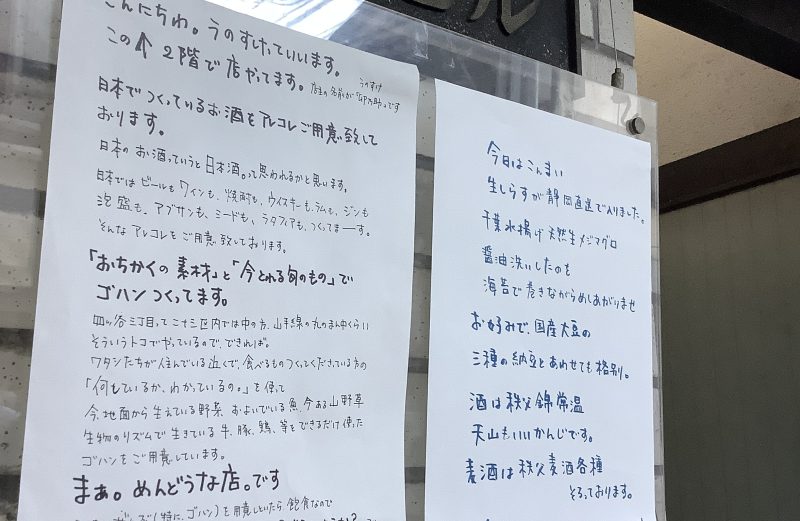 こんにちわ。うのすけっていいます。
この↑2階で店やってます。店主の名前が「卯乃助」です
うのすけ
日本でつくっているお酒をアレコレご用意致して
おります。
日本のお酒っていうと日本酒。って思われるかと思います。
日本ではビールもワインも、焼酎も、ウイスキーも、ラムも、ジンも
泡盛も、アブサンも、ミードも、ラタフィアも、つくってまーす。
そんなアレコレをご用意致しております。
「おちかくの素材」と「今とれる旬のもの」で
ゴハンつくってます。
四ッ谷三丁目って二十三区内では中の方、山手線の丸のまん中くらい
そういうトコでやっているので、できれば。
ワタシたちが住んでいる近くで、食べるものつくってくださっている方の
「何をしているか、わかっているの。」を使って
今、地面から生えている野菜、およいでいる魚、今ある山野草
生物のリズムで生きている牛、豚、鶏、等をできるだけ使った
ゴハンをご用意しています。
まぁ。めんどうな店。です
(特に、ゴハン)を用意しといたら、飲食なので
今日はこんまい
生しらすが静岡直送で入りました。
千葉水揚げ天然生メジマグロ
醤油洗いしたのを
海苔で巻きながらめしあがりませ
お好みで、国産大豆の
三種の納豆とあわせても格別。
酒は秩父錦常温
天山もいいかんじです。
麦酒は秩父麦酒各種
そろっております。